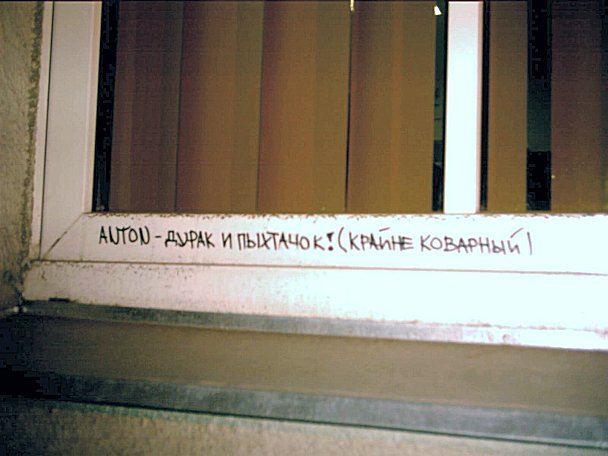 ANTON - ДУРАК И ПЫХТАЧОК! (КРАЙНЕ КОВАРНЫЙ)